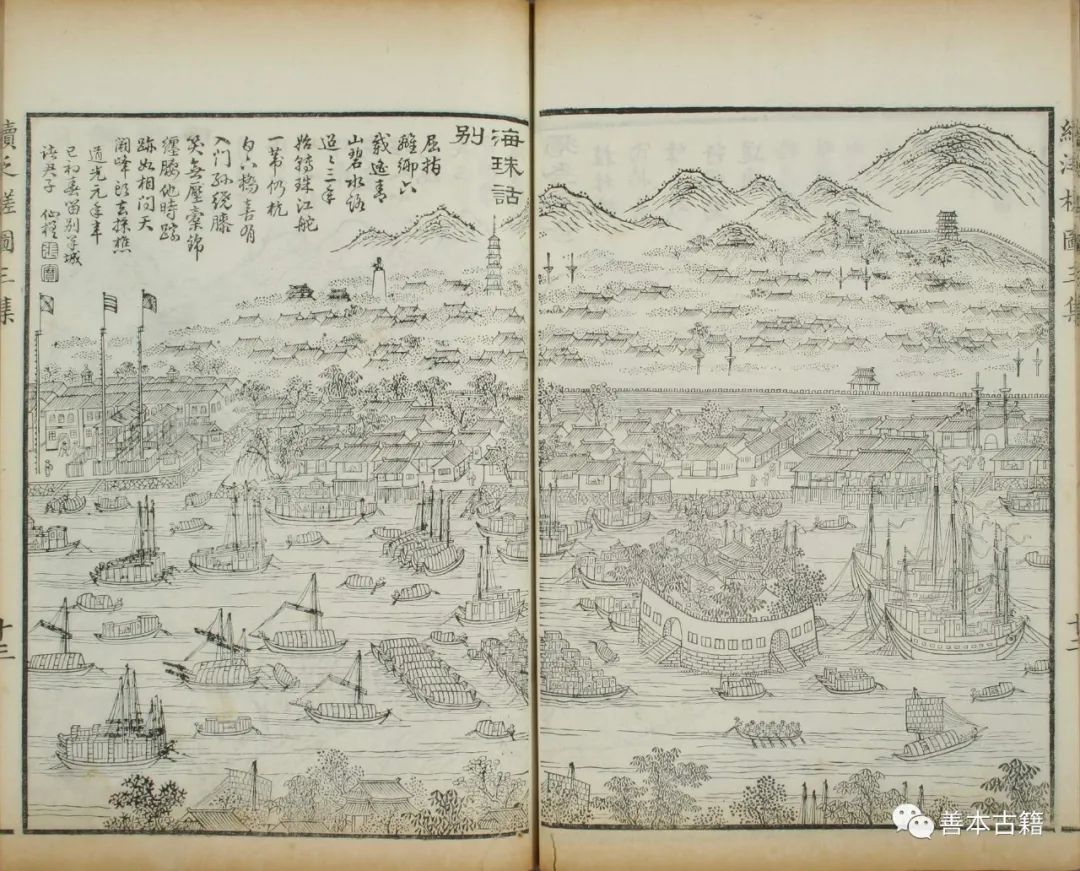 海珠話
別
屈指
離鄉六
載遙青
山碧水路
迢迢三年
始轉珠江舵
一葦仍杭
白六橋喜有
入門孫繞膝
笑無壓橐錦
纏腰他時踪
跡如相問天
闕峰頭去採樵
道光元年辛
巳初春留別羊城
諸君子 仙槎
續泛槎圖三集
十二
續泛槎圖三集
十三
善本古籍